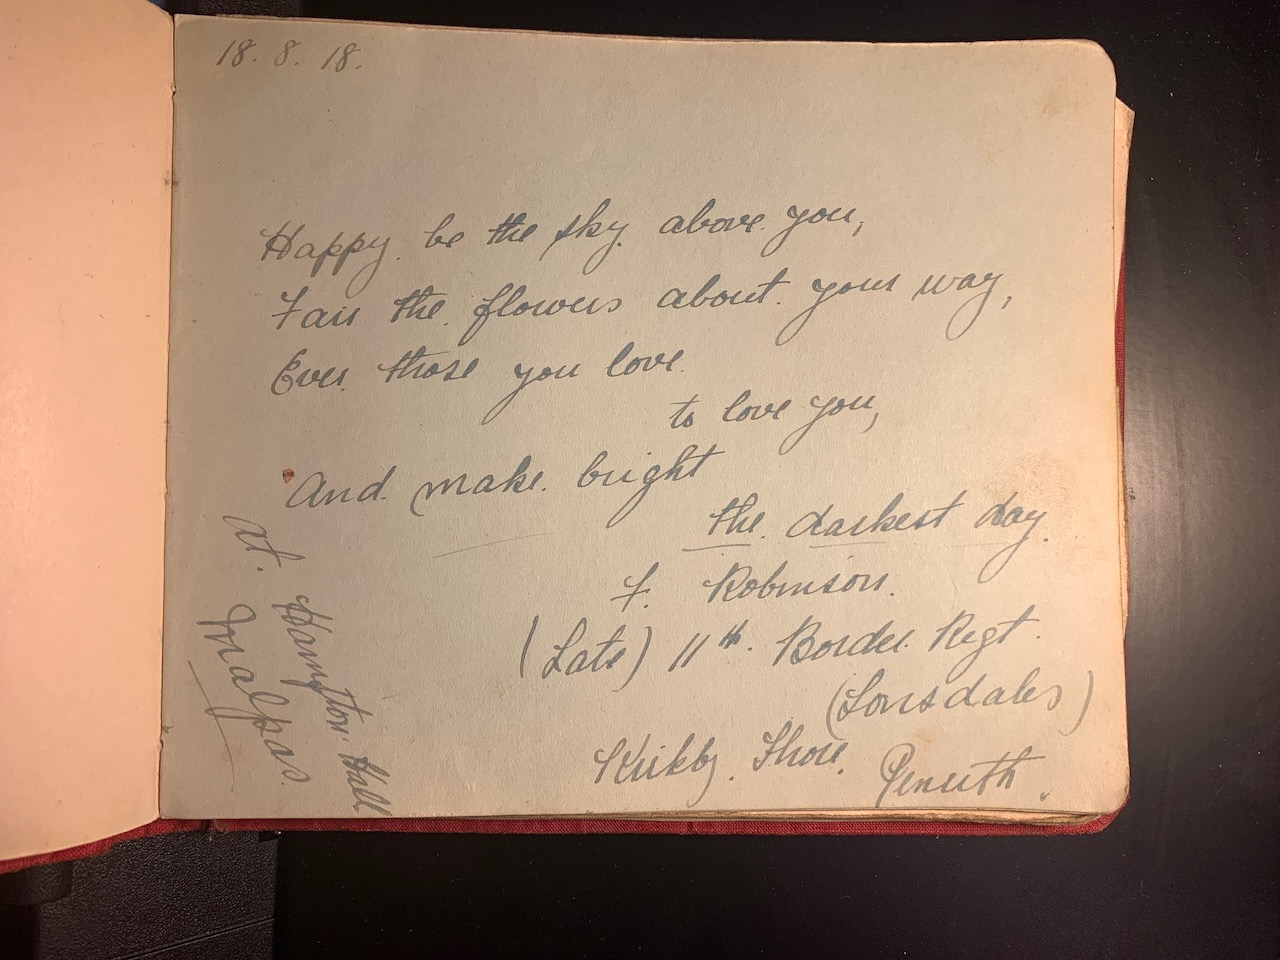 18. 8. 18.
Happy be the sky above you,
Fair the flowers about your way,
Ever those you love
to love you,
And make bright
the darkest day.
F. Robinson.
(Late) 11th Border Regt.
(Lonsdales)
Kirkby Thore. Penrith.
at. Hampton Hall
Malpas.